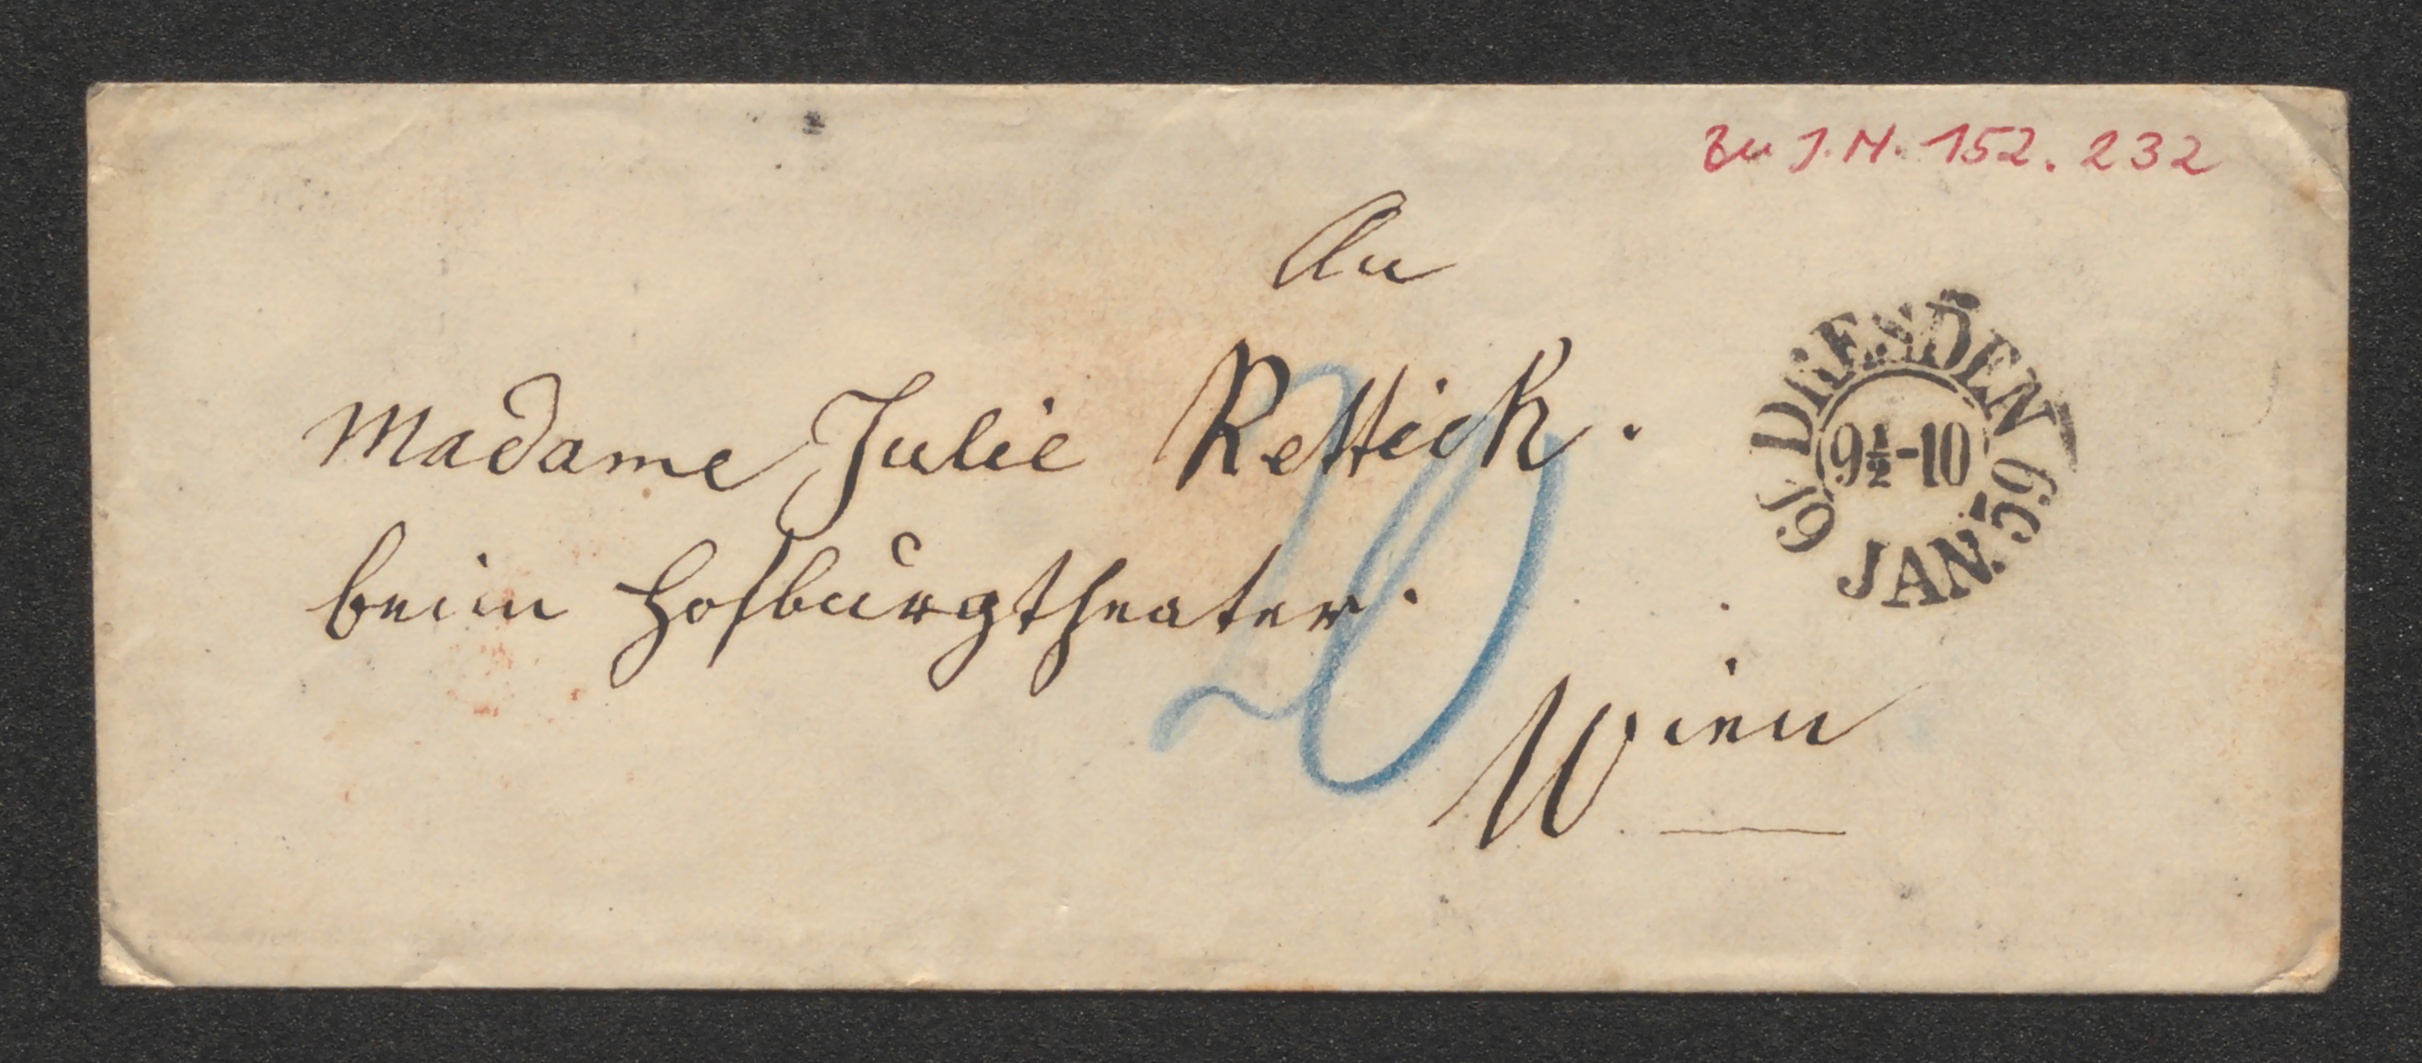 Zu J.N. 152.232
An
Madame Julie Rettich.
beim Hofburgtheater.
20
Wien
DRESDEN
9½-10
6 JAN. 59